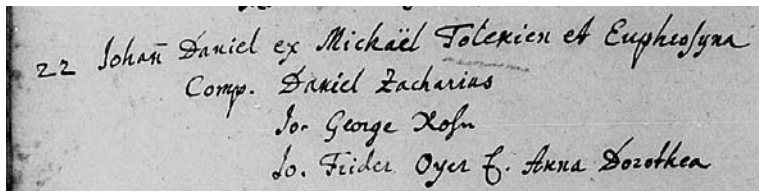 22 Johañ Daniel ex Mickaël Tolckien et Euphrosyna
Comp. Daniel Zacharias
Jo. George Rosn
Jo. Frider Oyer E. Anna Dorothea